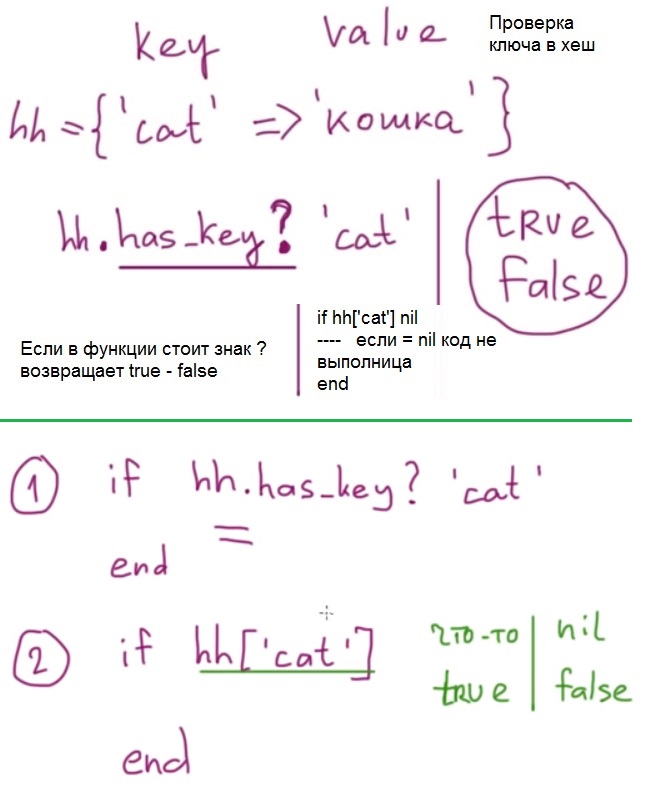 key value
Проверка
ключа в хеш
hh = {'cat' => 'кошка'}
hh.has_key? 'cat'
true
false
Если в функции стоит знак ?
возвращает true - false
if hh['cat'] nil
---- если = nil код не
выполница
end
1 if hh.has_key? 'cat'
=
end
2 if hh['cat']
что-то nil
true false
end